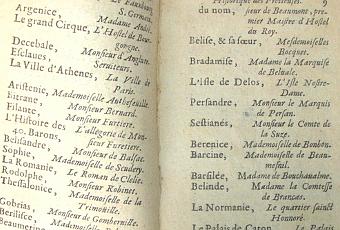 Argenice,
S. Germain.
Madame Aubri.
Le grand Cirque, L'Hostel de Bour-
gongne.
Decebale, Monsieur d'Anguien.
Esclaues, Seruiteurs.
La Ville d'Athenes, La Ville de
Paris.
Aristenie, Mademoiselle
Filante, Filant Bernard.
Monsieur Furetiere.
L'Histoire des
40. Barons, L'allegorie de Mon-
sieur Furetiere.
Belisandre, Monsieur de Balsac.
Sophie, Mademoiselle de Scudery.
La Romanie, Le Roman de Clelie.
Rodolphe, Monsieur Robinet.
Thessalonice, Mademoiselle de la
Trimoille.
Gobrias, Monsieur de Gomberville.
Berilisse,
Historique des Pretieuses. 9
du nom, sieur de Beaumont, pre-
mier Maistre d'Hostel
du Roy.
Belise, & sa sœur, Mesdemoiselles
Bocquet.
Bradamise, Madame la Marquise
de Beluale.
L'Isle de Delos, L'Isle Nostre-
Dame.
Persandre, Monsieur le Marquis
de Persan.
Sestianés, Monsieur le Comte de
la Suze.
Berenice, Mademoiselle de Bonbon.
Barcine, Mademoiselle de Beau-
mesnil.
Barsilée, Madame de Bonchaualme.
Belinde, Madame la Comtesse
de Brancas.
La Normanie, Le quartier sainct
Honoré.
Le Palais de Caton, Le Palais